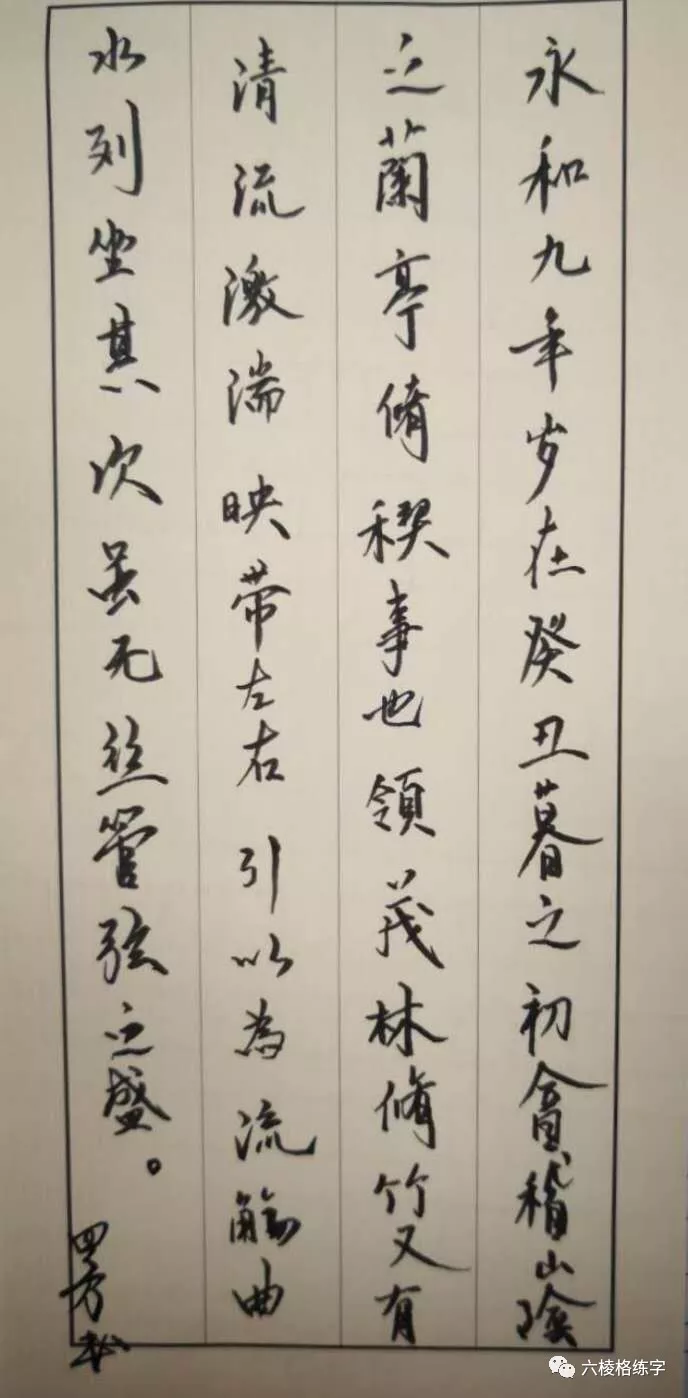 永和九年岁在癸丑暮之初會稽山陰
之蘭亭脩稧事也領茂林脩竹又有
清流激湍映带左右引以為流觴曲
水列坐其次虽无丝管弦之盛。
四方书
六棱格练字